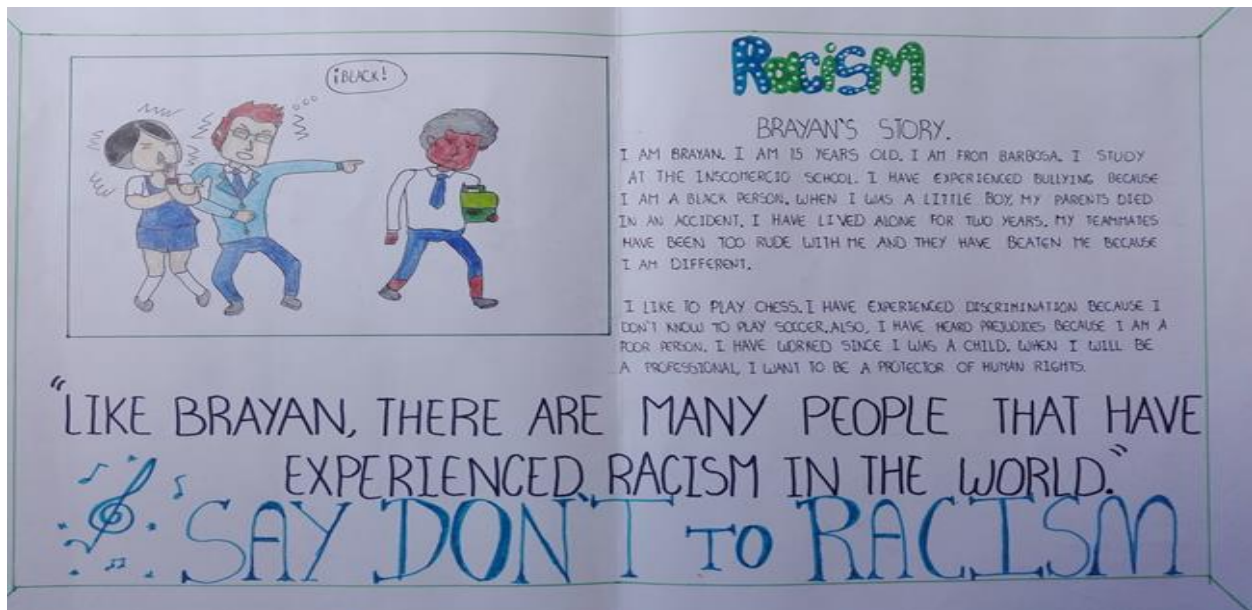 ¡BLACK!
RACISM
BRAYAN'S STORY.
I AM BRAYAN. I AM 15 YEARS OLD. I AM FROM BARBOSA. I STUDY
AT THE INSCOMERCIO SCHOOL. I HAVE EXPERIENCED BULLYING BECAUSE
I AM A BLACK PERSON. WHEN I WAS A LITTLE BOY, MY PARENTS DIED
IN AN ACCIDENT. I HAVE LIVED ALONE FOR TWO YEARS. MY TEAMMATES
HAVE BEEN TOO RUDE WITH ME AND THEY HAVE BEATEN ME BECAUSE
I AM DIFFERENT.
I LIKE TO PLAY CHESS. I HAVE EXPERIENCED DISCRIMINATION BECAUSE I
DON'T KNOW TO PLAY SOCCER. ALSO, I HAVE HEARD PREJUDICES BECAUSE I AM A
POOR PERSON. I HAVE WORKED SINCE I WAS A CHILD. WHEN I WILL BE
A PROFESSIONAL, I WANT TO BE A PROTECTOR OF HUMAN RIGHTS.
"LIKE BRAYAN, THERE ARE MANY PEOPLE THAT HAVE
EXPERIENCED RACISM IN THE WORLD."
SAY DON'T TO RACISM